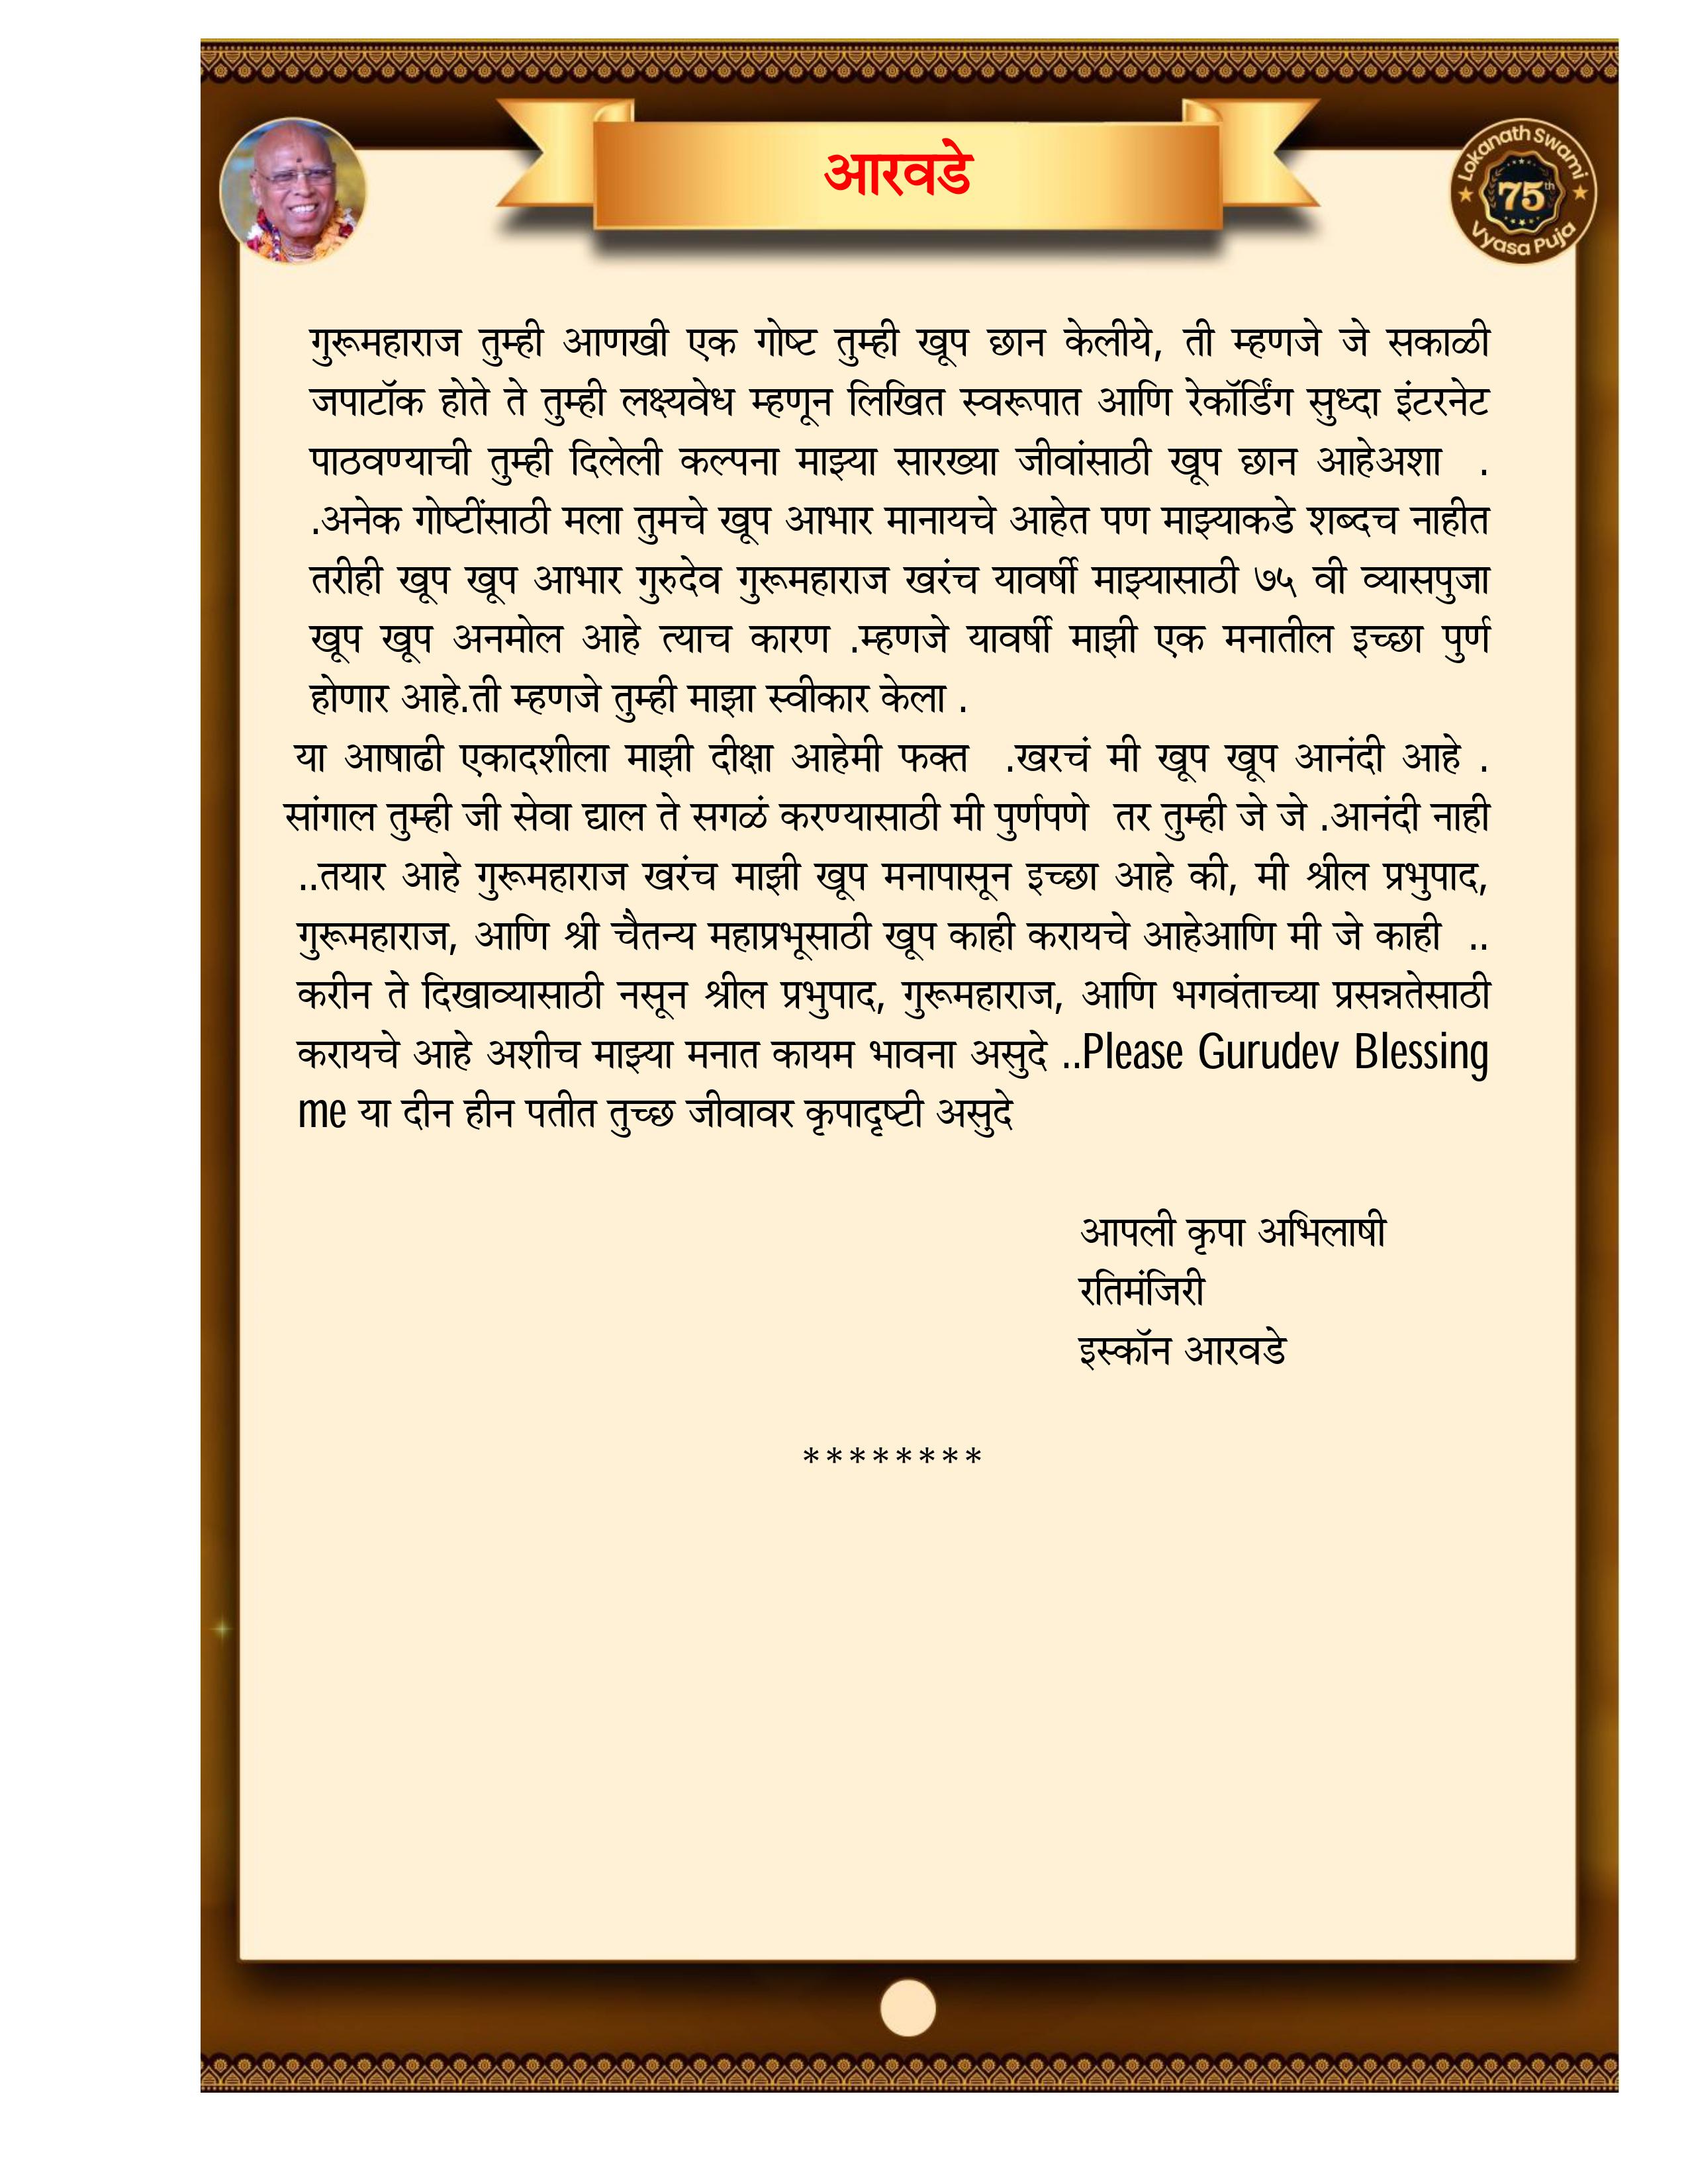 आरवडे
Lokanath Swami
75th
Vyasa Puja
गुरूमहाराज तुम्ही आणखी एक गोष्ट तुम्ही खूप छान केलीये, ती म्हणजे जे सकाळी
जपाटॉक होते ते तुम्ही लक्ष्यवेध म्हणून लिखित स्वरूपात आणि रेकॉर्डिंग सुध्दा इंटरनेट
पाठवण्याची तुम्ही दिलेली कल्पना माझ्या सारख्या जीवांसाठी खूप छान आहेअशा .
.अनेक गोष्टींसाठी मला तुमचे खूप आभार मानायचे आहेत पण माझ्याकडे शब्दच नाहीत
तरीही खूप खूप आभार गुरुदेव गुरूमहाराज खरंच यावर्षी माझ्यासाठी ७५ वी व्यासपुजा
खूप खूप अनमोल आहे त्याच कारण .म्हणजे यावर्षी माझी एक मनातील इच्छा पुर्ण
होणार आहे.ती म्हणजे तुम्ही माझा स्वीकार केला .
या आषाढी एकादशीला माझी दीक्षा आहेमी फक्त .खरचं मी खूप खूप आनंदी आहे .
सांगाल तुम्ही जी सेवा द्याल ते सगळं करण्यासाठी मी पुर्णपणे तर तुम्ही जे जे .आनंदी नाही
..तयार आहे गुरूमहाराज खरंच माझी खूप मनापासून इच्छा आहे की, मी श्रील प्रभुपाद,
गुरूमहाराज, आणि श्री चैतन्य महाप्रभूसाठी खूप काही करायचे आहेआणि मी जे काही ..
करीन ते दिखाव्यासाठी नसून श्रील प्रभुपाद, गुरूमहाराज, आणि भगवंताच्या प्रसन्नतेसाठी
करायचे आहे अशीच माझ्या मनात कायम भावना असुदे ..Please Gurudev Blessing
me या दीन हीन पतीत तुच्छ जीवावर कृपादृष्टी असुदे
आपली कृपा अभिलाषी
रतिमंजिरी
इस्कॉन आरवडे
********